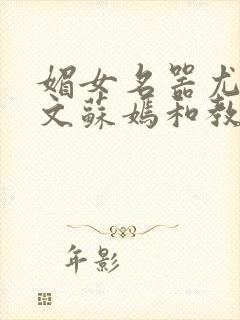 媚女名器尤
文蘇媽和教
年影